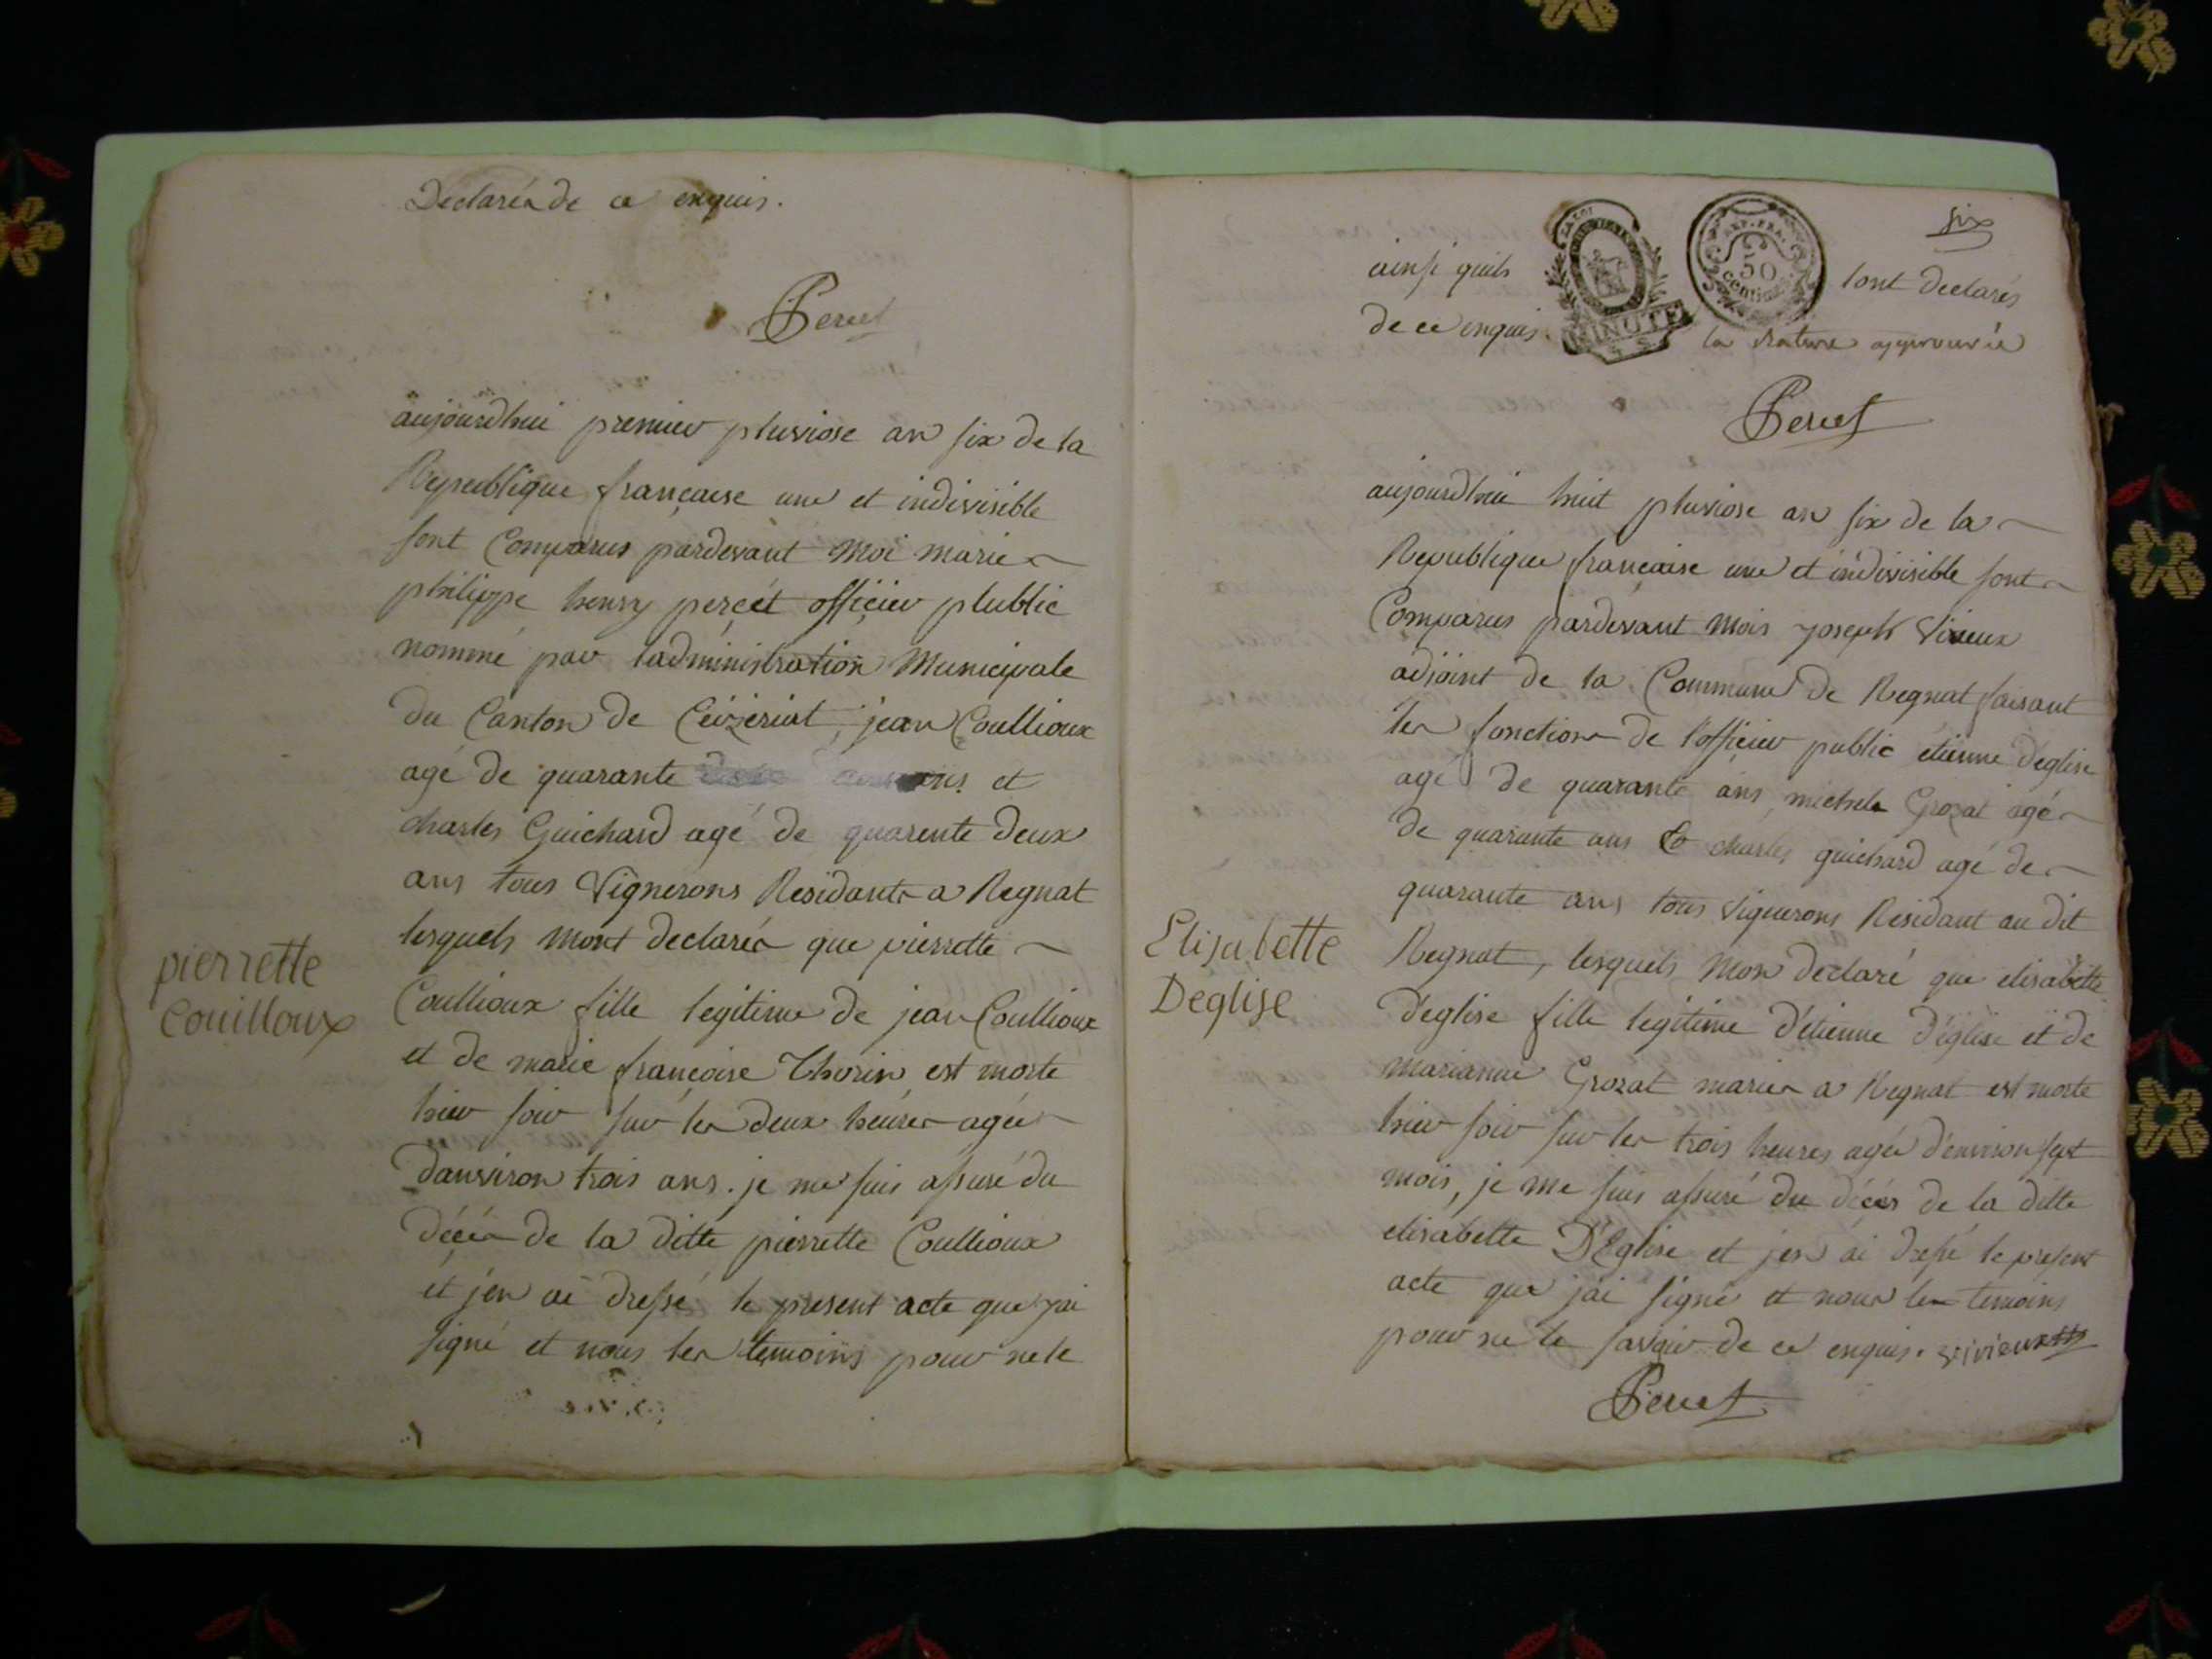 Declarés de ce enquis.
Perret
aujourdhui premier pluviose an six de la
Republique françaese une et indivisible
sont Comparus pardevant moi marie
philippe henry perçét officier plublic
nommé par ladministration Municipale
du Canton de Ceizériat, jean Coullioux
agé de quarante ans et
charles Guichard agé de quarente deux
ans tous Vignerons Residants a Regnat
lesquels mont declarés que pierrette
pierrette
Couilloux
Coullioux fille legitime de jean Coullioux
et de marie françoise Thorin est morte
hier soir sur les deux heures agée
danviron trois ans. je me suis assuré du
décés de la ditte pierrette Coullioux
et j'en ai dressé le present acte que j'ai
signé et nous les temoins pour ne le
six
ainsi quils sont declarés
de ce enquis. la rature approuvée
LA LOI
MINUTE
REP. FRA.
50
centim.
Perret
aujourdhui huit pluviose an six de la
Republique française une et indivisible sont
Comparus pardevant mois joseph Vivieux
adjoint de la Commune de Regnat faisant
les fonctions de l'officier public étienne d'eglise
agé de quarante ans, michel Grozat agé
de quarante ans & charles guichard agé de
quarante ans tous vignerons Residant au dit
Elisabette
Deglise
Regnat, lesquels mon declaré que elisabette
d'eglise fille legitime d'étienne d'église et de
marianne Grozat mariés a Regnat est morte
hier soir sur les trois heures agée d'environ sept
mois, je me suis assuré du décés de la ditte
elisabette D'Eglise et j'en ai dressé le present
acte que j'ai signé et nous les temoins
pour ne le savoir de ce enquis.
Perret